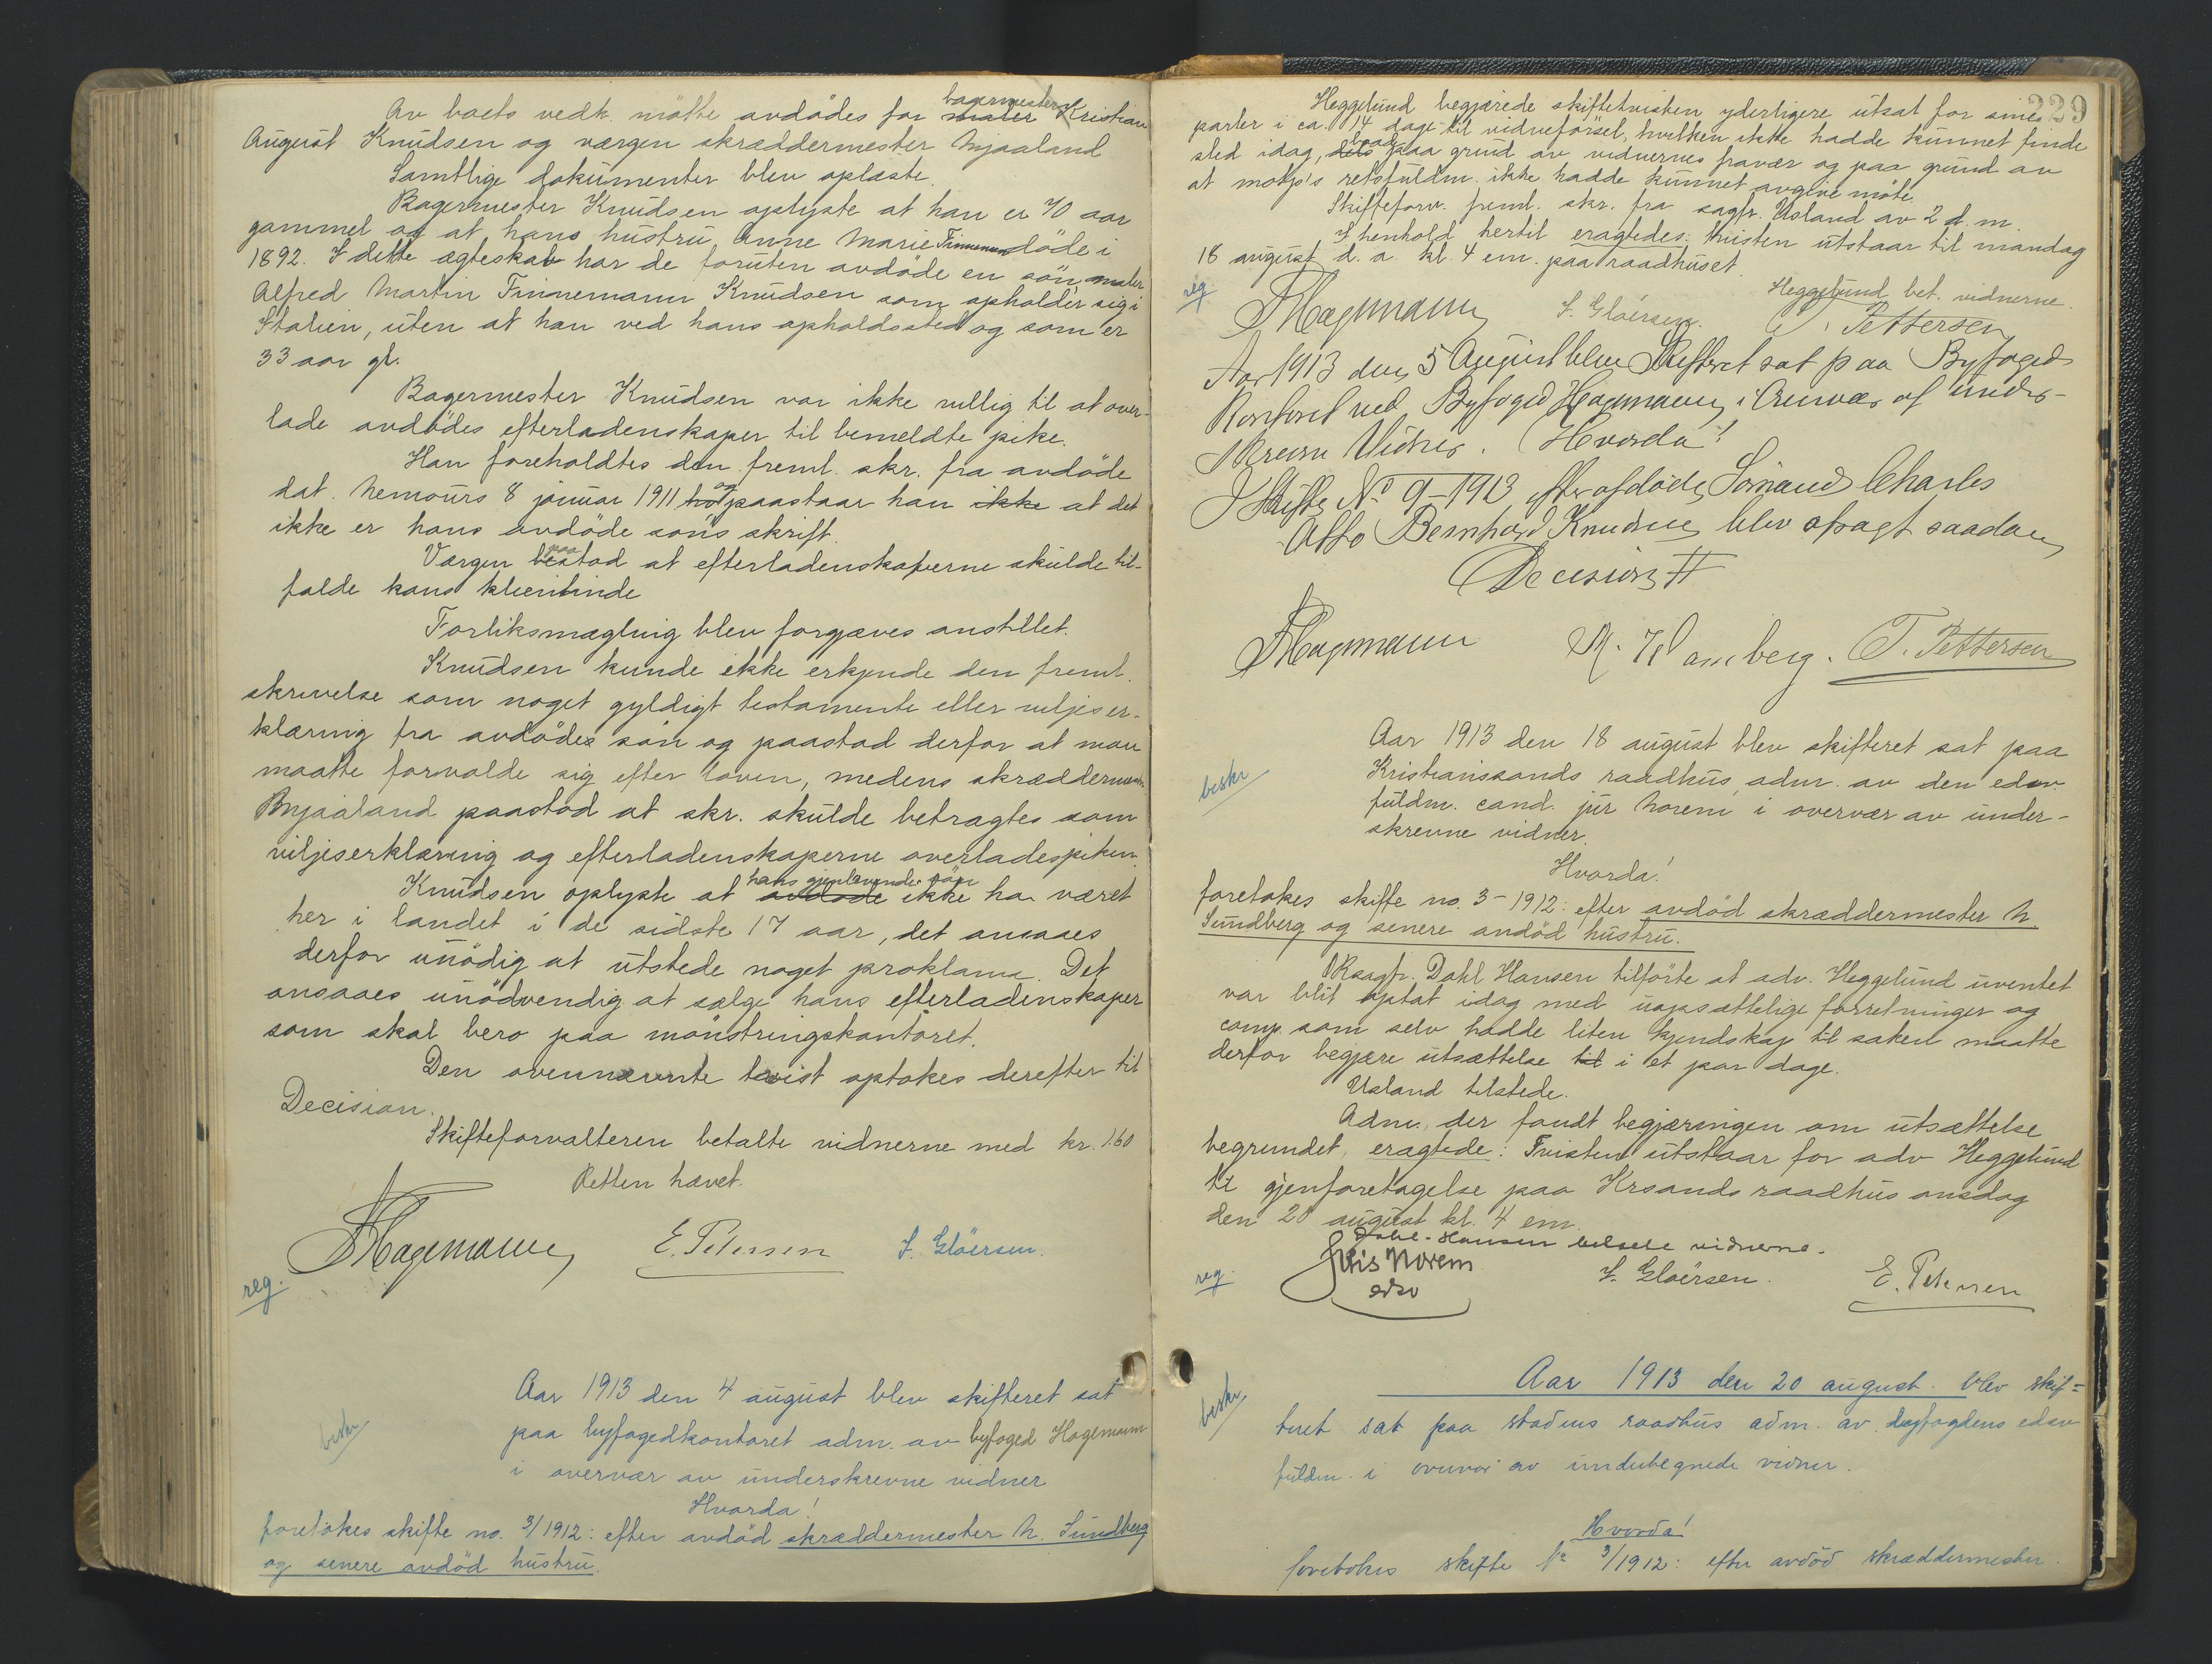 Av boets vedk. mötte avdödes far maler bagermester Kristian
August Knudsen og værgen skræddermester Mjaaland
Samtlige dokumenter blev oplæste.
Bagermester Knudsen oplyste at han er 70 aar
gammel og at hans hustru Anne Marie Finnemann döde i
1892. I dette ægteskab har de foruten avdöde en sön, maler
Alfred Martin Finnemann Knudsen som opholder sig i
Italien, uten at han ved hans opholdssted og som er
33 aar gl.
Bagermester Knudsen var ikke villig til at over-
lade avdödes efterladenskaper til bemeldte pike.
Han foreholdtes den freml. skr. fra avdöde
dat. Nemours 8 januar 1911 og paastaar han ikke at det
ikke er hans avdöde söns skrift.
Værgen paastod at efterladenskaperne skulde til-
falde hans klientinde
Forliksmægling blev forgjæves anstillet.
Knudsen kunde ikke erkjende den freml.
skrivelse som noget gyldigt testamente eller viljeser-
klæring fra avdödes sön og paastod derfor at man
maatte forholde sig efter loven, medens skræddermester
Mjaaland paastod at skr. skulde betragtes som
viljeserklæring og efterladenskaperne overlades piken.
Knudsen oplyste at avdöde hans gjenlevende sön ikke har været
her i landet i de sidste 17 aar, det ansaaes
derfor unödig at utstede noget proklama. Det
ansaaes unödvendig at sælge hans efterladenskaper
som skal bero paa mönstringskontoret.
Den ovennævnte tvist optokes derefter til
Decision.
Skifteforvalteren betalte vidnerne med kr. 1.60
Retten hævet.
Hagemann E. Petersen S. Glöersen.
reg.
Aar 1913 den 4 august blev skifteret sat
paa byfogedkontoret adm. av byfoged Hagemann
beskr
i overvær av underskrevne vidner
Hvorda!
foretokes skifte no. 3/1912: efter avdöd skræddermester N. Sundberg
og senere avdöd hustru.
229
Heggelund begjærede skiftetvisten yderligere utsat for sine
parter i ca. 14 dage til vidneförsel, hvilken ikke hadde kunnet finde
sted idag, dels baade paa grund av vidnernes fravær og paa grund av
at motp's retsfuldm. ikke hadde kunnet avgive möte.
Skifteforv. freml. skr. fra sagfr. Usland av 2 d.m.
I henhold hertil eragtedes: tvisten utstaar til mandag
18 august d. a. kl. 4 em. paa raadhuset.
Heggelund bet. vidnerne.
reg
Hagemann S. Glöersen. T. Pettersen
Aar 1913 den 5 August blev Skifteret sat paa Byfoged
Kontoret ved Byfoged Hagemann, i Overvær af under-
skrevne Vidner. Hvorda!
I Skifte No 9-1913 efter afdöde Sömand Charles
Otto Bernhard Knudsen blev afsagt saadan
Decision #
Hagemann T. Pettersen
Aar 1913 den 18 august blev skifteret sat paa
beskr
Kristianssands raadhus, adm. av den edsv.
fuldm. cand. jur Norem i overvær av under-
skrevne vidner.
Hvorda!
foretokes skifte no. 3-1912: efter avdöd skræddermester N.
Sundberg og senere avdöd hustru.
Sagfr. Dahl Hansen tilförte at adv. Heggelund uventet
var blit optat idag med uopsættelige forretninger og
comp. som selv hadde liten kjendskap til saken maatte
derfor begjære utsættelse til i et par dage.
Usland tilstede.
Adm., der fandt begjæringen om utsættelse
begrundet, eragtede: Tvisten utstaar for adv Heggelund
til gjenforetagelse paa Krsands raadhus onsdag
den 20 august kl. 4 em.
Dahl-Hansen betalte vidnerne.
reg.
Norem S. Glöersen. E. Petersen
edsv
Aar 1913 den 20 august. blev skif-
beskr
teret sat paa stadens raadhus adm. av byfogdens edsv
fuldm. i overvær av undertegnede vidner.
Hvorda!
foretokes skifte No 3/1912: efter avdöd skræddermester